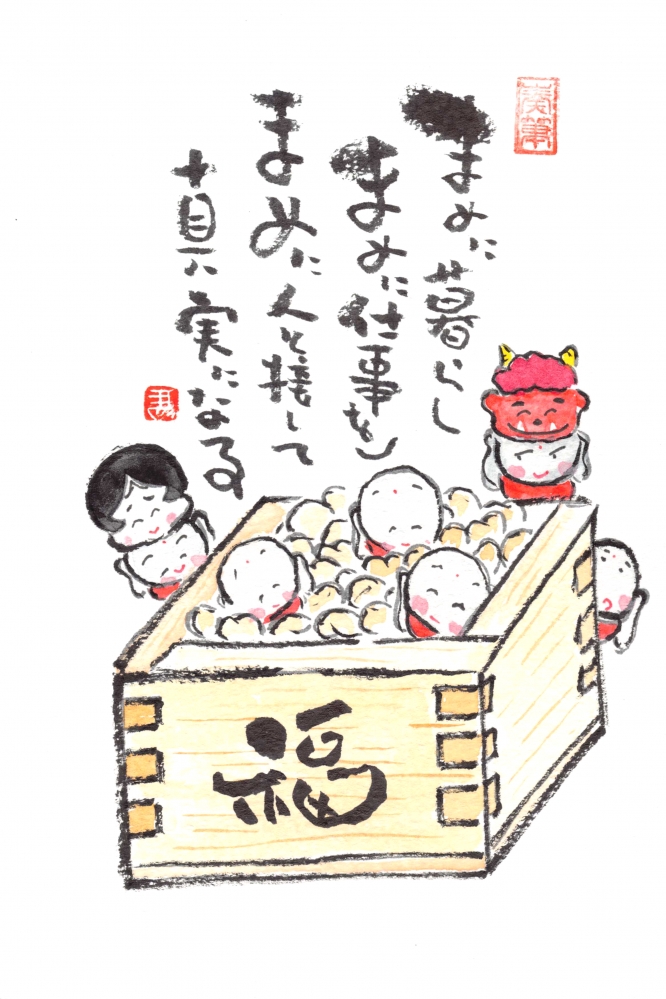 まめに暮らし
まめに仕事をし
まめに人と接して
真に実になる
福